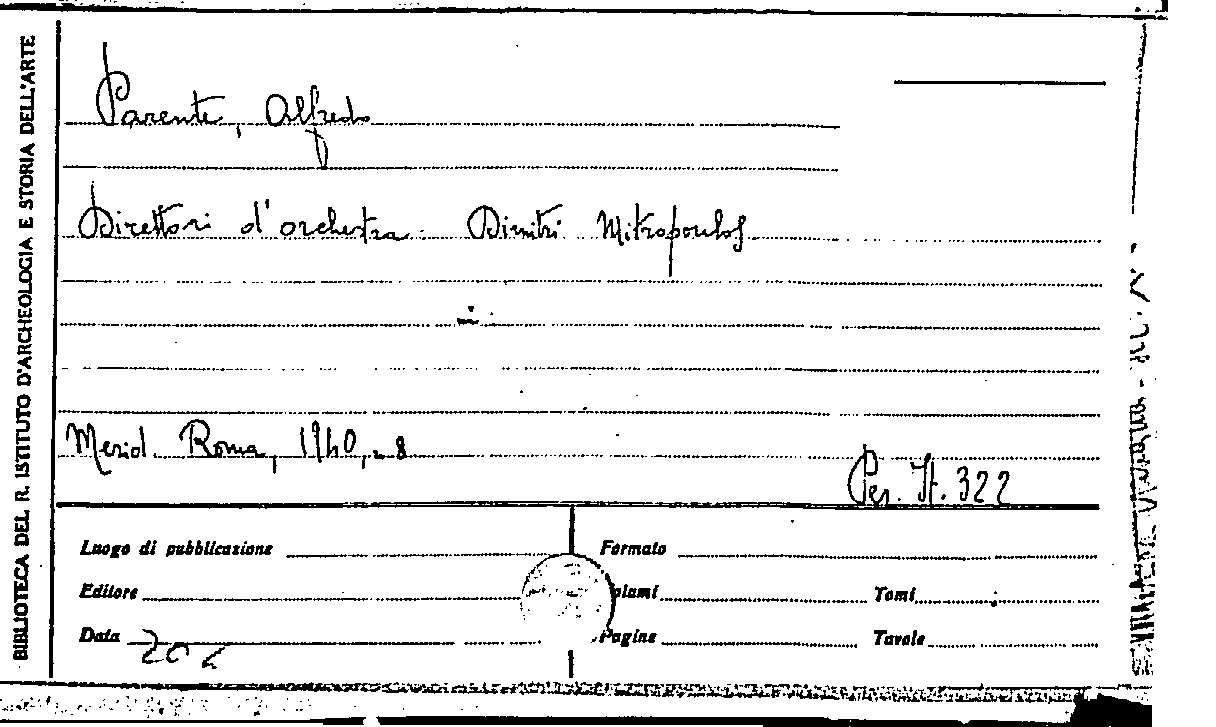 BIBLIOTECA DEL R. ISTITUTO D'ARCHEOLOGIA E STORIA DELL'ARTE
Parente, Alfredo
Direttori d'orchestra. Dimitri Mitropoulos
Merid. Roma, 1940, n 8
Per. It. 322
Luogo di pubblicazione
Formato
Editore
Tomi
Data
Pagine
Tavole